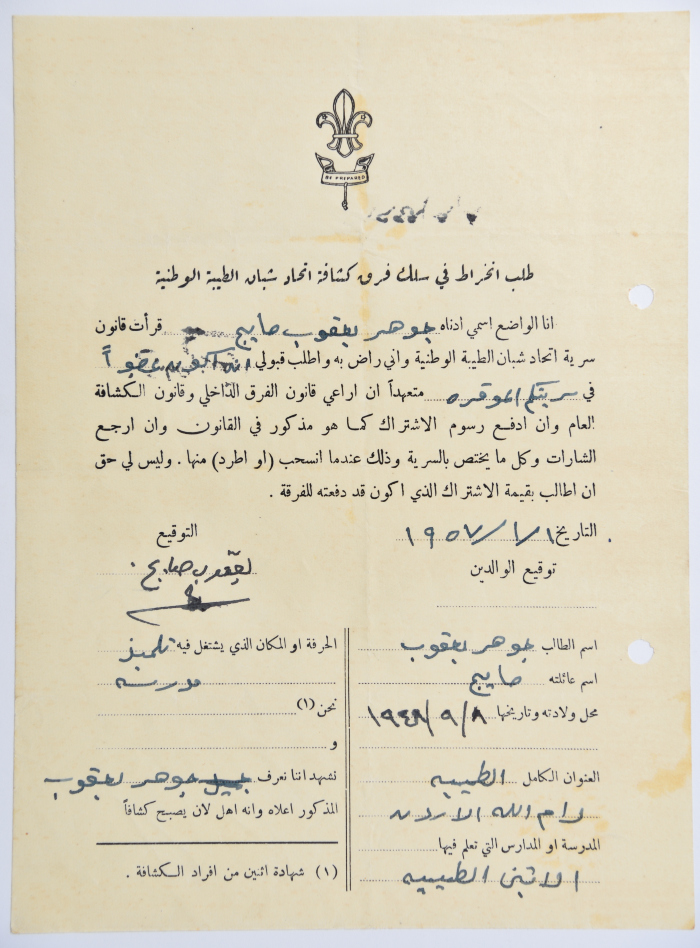 BE PREPARED
طلب انخراط في سلك فرق كشافة اتحاد شبان الطيبة الوطنية
انا الواضع اسمي ادناه جوهر يعقوب صايج قرأت قانون
سرية اتحاد شبان الطيبة الوطنية واني راض به واطلب قبولي ان اكون عضواً
في سريتكم الموقره متعهداً ان اراعي قانون الفرق الداخلي وقانون الكشافة
العام وان ادفع رسوم الاشتراك كما هو مذكور في القانون وان ارجع
الشارات وكل ما يختص بالسرية وذلك عندما انسحب (او اطرد) منها . وليس لي حق
ان اطالب بقيمة الاشتراك الذي اكون قد دفعته للفرقة .
التاريخ ١/١/١٩٥٧
توقيع الوالدين
التوقيع
يعقوب صايج .
اسم الطالب جوهر يعقوب
اسم عائلته صايج
محل ولادته وتاريخها ٨/٩/١٩٤٨
العنوان الكامل الطيبه
رام الله الاردن
المدرسة او المدارس التي تعلم فيها
الاتين الطيبيه
الحرفة او المكان الذي يشتغل فيه تلميذ
مدرسه
نحن (١)
و
نشهد اننا نعرف جوهر يعقوب
المذكور اعلاه وانه اهل لان يصبح كشافاً
(١) شهادة اثنين من افراد الكشافة .